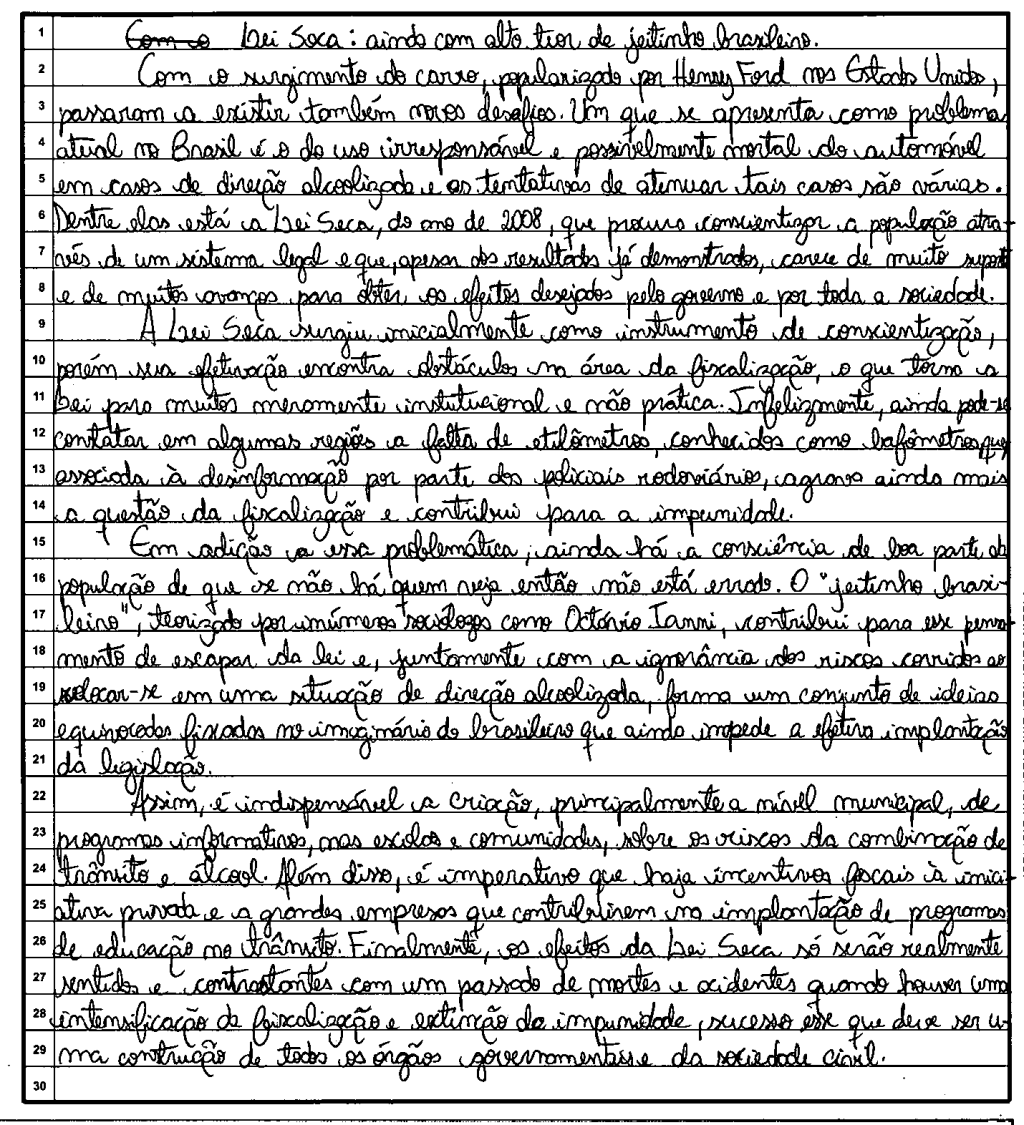 1 Com o Lei Seca: ainda com alto teor de jeitinho brasileiro.
2 Com o surgimento do carro, popularizado por Henry Ford nos Estados Unidos,
3 passaram a existir também novos desafios. Um que se apresenta como problema
4 atual no Brasil é o do uso irresponsável e possivelmente mortal do automóvel
5 em casos de direção alcoolizada e as tentativas de atenuar tais casos são várias.
6 Dentre elas está a Lei Seca, do ano de 2008, que procura conscientizar a população atra-
7 vés de um sistema legal e que, apesar dos resultados já demonstrados, carece de muito suporte
8 e de muitos avanços para obter os efeitos desejados pelo governo e por toda a sociedade.
9 A Lei Seca surgiu inicialmente como instrumento de conscientização,
10 porém sua efetivação encontra obstáculos na área da fiscalização, o que torna a
11 Lei para muitos meramente institucional e não prática. Infelizmente, ainda pode-se
12 contatar em algumas regiões a falta de etilômetros, conhecidos como bafômetros, que,
13 associada à desinformação por parte dos policiais rodoviários, agrava ainda mais
14 a questão da fiscalização e contribui para a impunidade.
15 Em adição a essa problemática, ainda há a consciência de boa parte da
16 população de que se não há quem veja então não está errado. O "jeitinho brasi-
17 leiro", teorizado por inúmeros sociólogos como Octávio Ianni, contribui para esse pensa-
18 mento de escapar da lei e, juntamente com a ignorância dos riscos corridos ao
19 colocar-se em uma situação de direção alcoolizada, forma um conjunto de ideias
20 equivocadas fixadas no imaginário do brasileiro que ainda impede a efetiva implantação
21 da legislação.
22 Assim, é indispensável a criação, principalmente a nível municipal, de
23 programas informativos, nas escolas e comunidades, sobre os riscos da combinação de
24 trânsito e álcool. Além disso, é imperativo que haja incentivos fiscais à inici-
25 ativa privada e a grandes empresas que contribuirem na implantação de programas
26 de educação no trânsito. Finalmente, os efeitos da Lei Seca só serão realmente
27 sentidos e contrastantes com um passado de mortes e acidentes quando houver uma
28 intensificação da fiscalização e extinção da impunidade, sucesso esse que deve ser u-
29 ma construção de todos os órgãos governamentais e da sociedade civil.
30